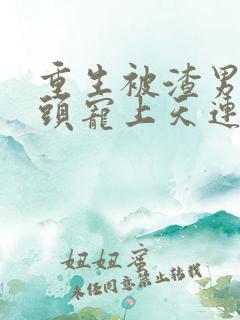 重生被渣男
頭寵上天連
妞妞蜜
未经同意禁止转载